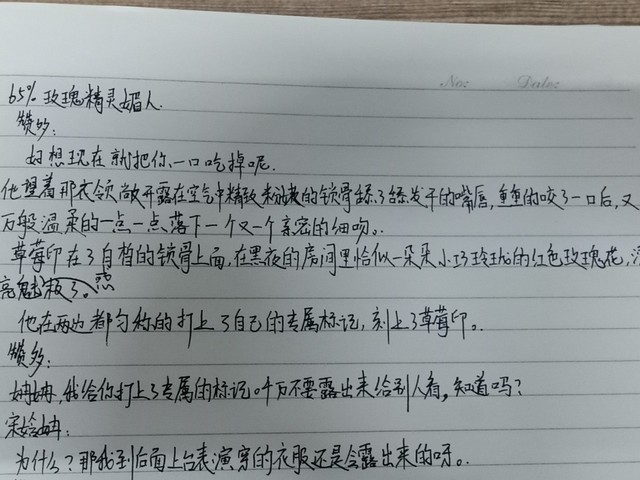 No: Date:
65% 玫瑰精灵媚人.
赞多:
好想现在就把你一口吃掉呢.
他望着那衣领敞开露在空气中精致粉嫩的锁骨舔了舔发干的嘴唇,重重的咬了一口后,又
万般温柔的一点一点落下一个又一个亲密的细吻。.
草莓印在了白皙的锁骨上面,在黑夜的房间里恰似一朵朵小巧玲珑的红色玫瑰花,
亮魅极了。惑
他在两边都匀称的打上了自己的专属标记,刻上了草莓印。.
赞多:
妠妠,我给你打上了专属的标记。千万不要露出来给别人看,知道吗?
为什么?那我到后面上台表演穿的衣服还是会露出来的呀。.